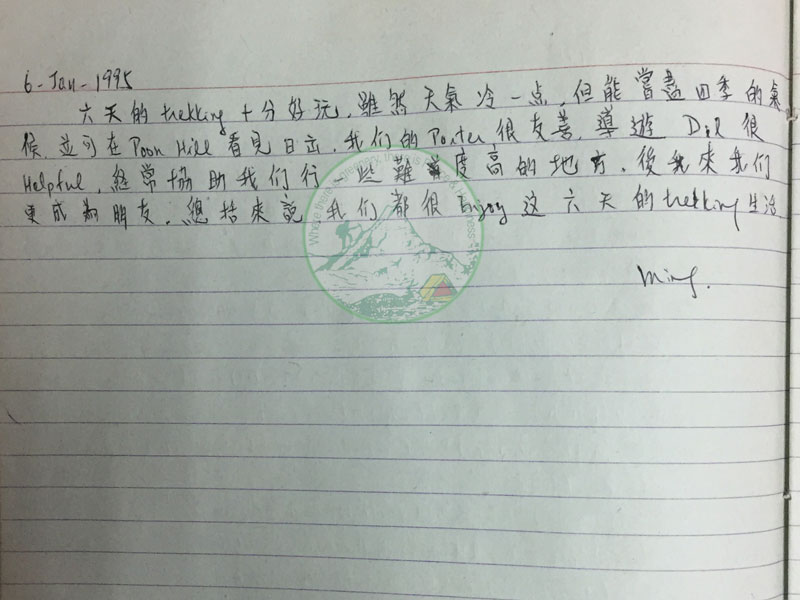 6-Jan-1995
六天的 trekking 十分好玩，雖然天氣冷一点，但能嘗盡四季的氣
候，並可在 Poon Hill 看見日出，我们的 Porter 很友善，導遊 Dil 很
Helpful，經常協助我们行一些難度高的地方，後來我们
更成為朋友，總括來說，我们都很 Enjoy 这六天的 trekking 生活
Ming.